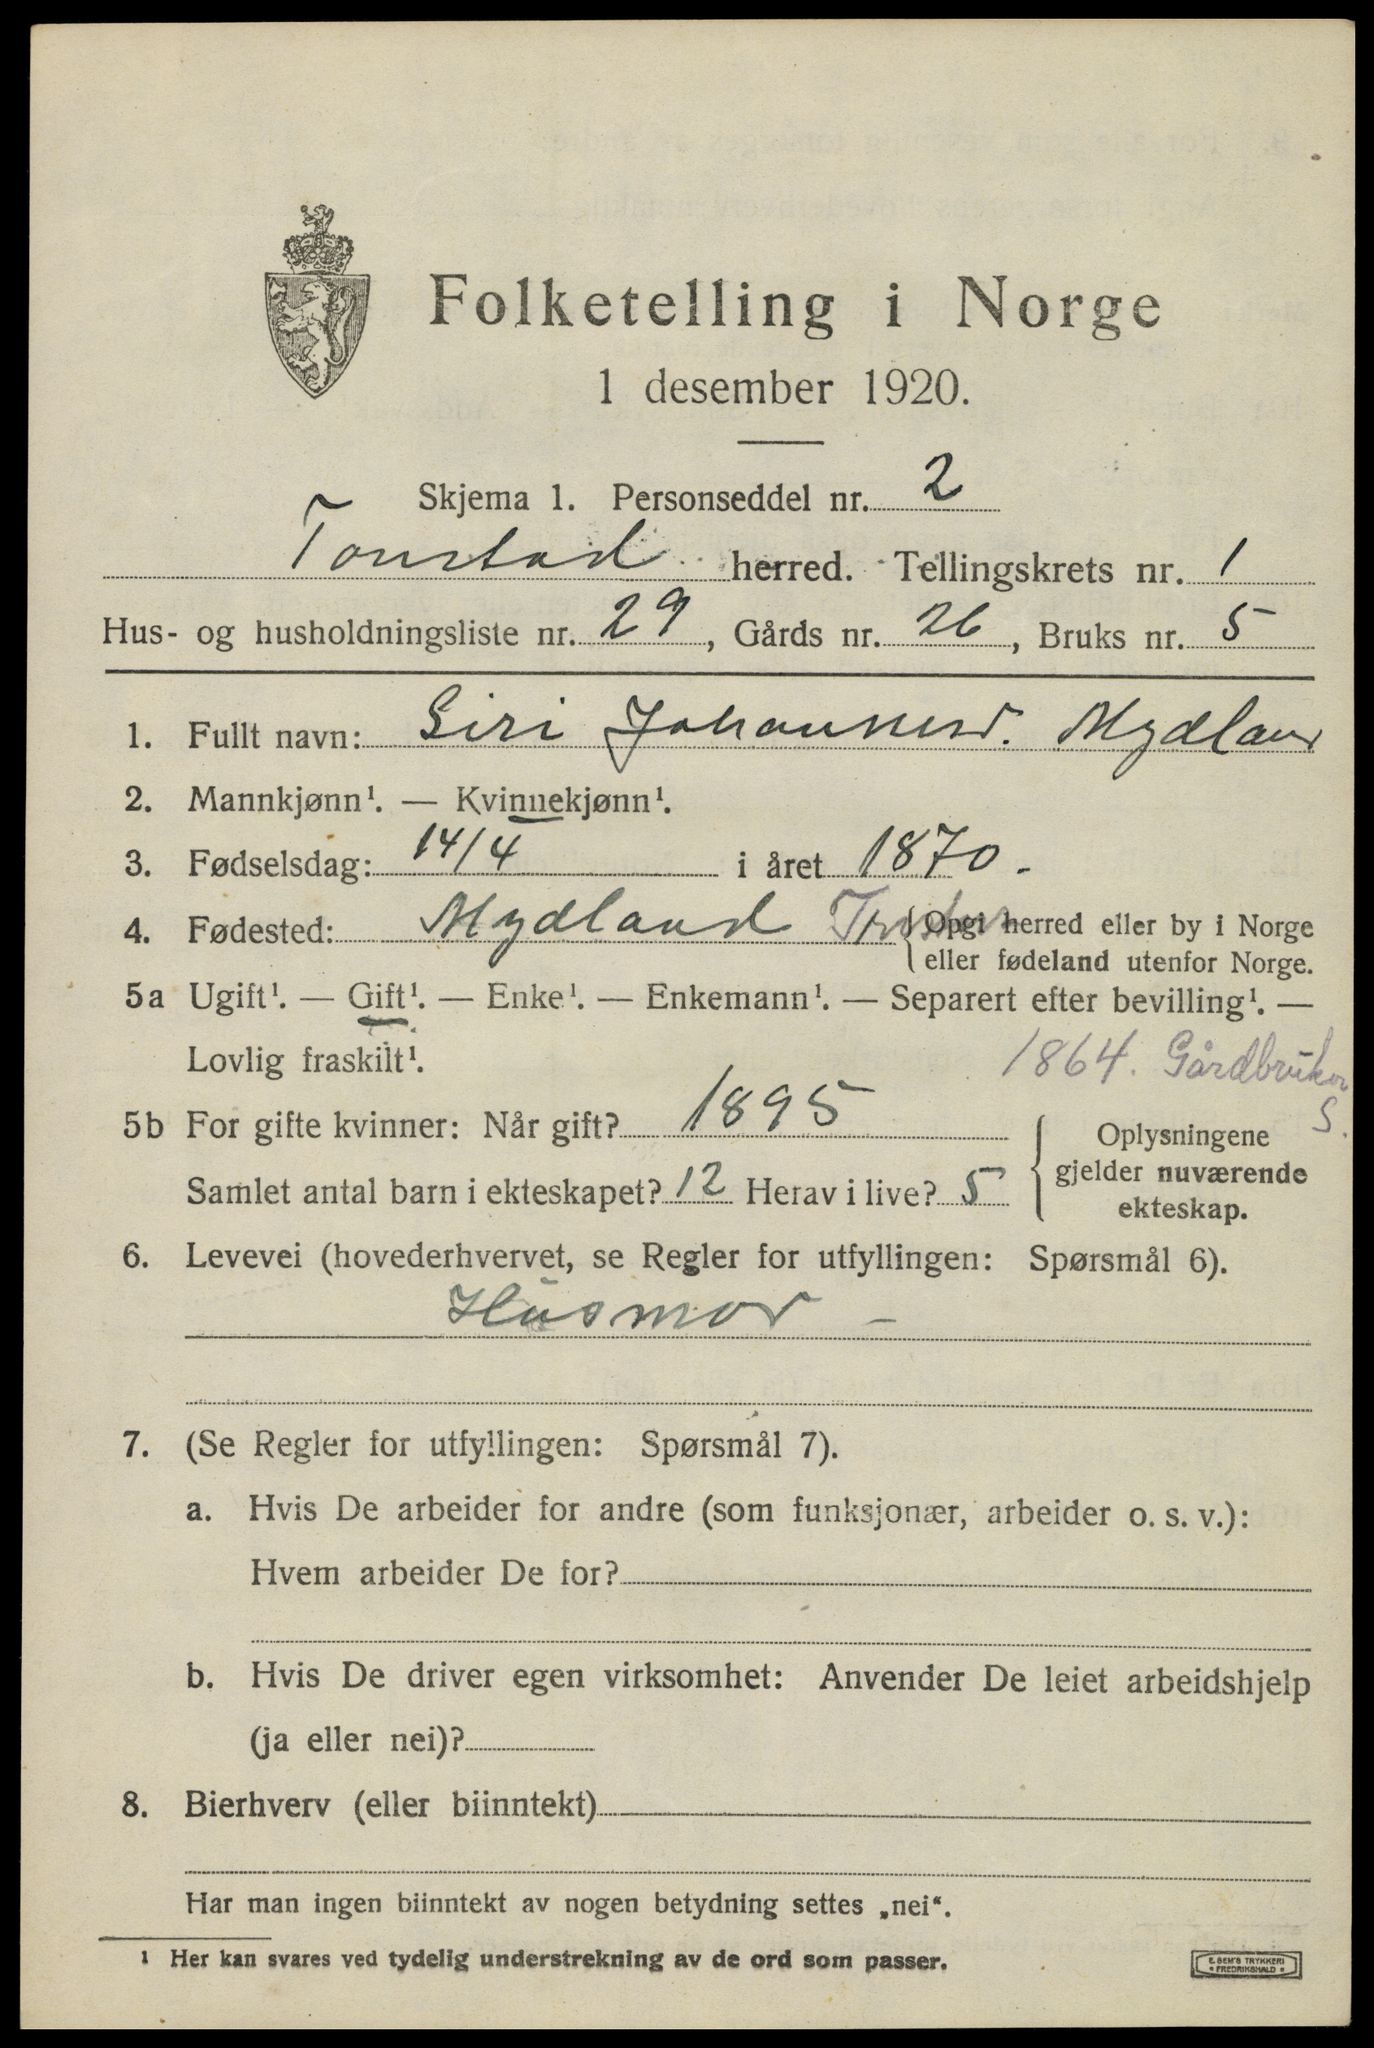 Folketelling i Norge
1 desember 1920.
Skjema 1. Personseddel nr. 2
Tonstad herred. Tellingskrets nr. 1
Hus- og husholdningsliste nr. 29, Gårds nr. 26, Bruks nr. 5
1. Fullt navn: Siri Johannesd. Mydland
2. Mannkjønn¹. — Kvinnekjønn¹.
3. Fødselsdag: 14/4 i året 1870.
4. Fødested: Mydland {Opgi herred eller by i Norge
eller fødeland utenfor Norge.
5a Ugift¹. — Gift¹. — Enke¹. — Enkemann¹. — Separert efter bevilling¹. —
Lovlig fraskilt¹.
1864. Gårdbruker
S.
5b For gifte kvinner: Når gift? 1895
Samlet antal barn i ekteskapet? 12 Herav i live? 5
Oplysningene
gjelder nuværende
ekteskap.
6. Levevei (hovederhvervet, se Regler for utfyllingen: Spørsmål 6).
Husmor —
7. (Se Regler for utfyllingen: Spørsmål 7).
a. Hvis De arbeider for andre (som funksjonær, arbeider o. s. v.):
Hvem arbeider De for?
b. Hvis De driver egen virksomhet: Anvender De leiet arbeidshjelp
(ja eller nei)?
8. Bierhverv (eller biinntekt)
Har man ingen biinntekt av nogen betydning settes „nei“.
¹ Her kan svares ved tydelig understrekning av de ord som passer.
E. SEM'S TRYKKERI
• FREDRIKSHALD •